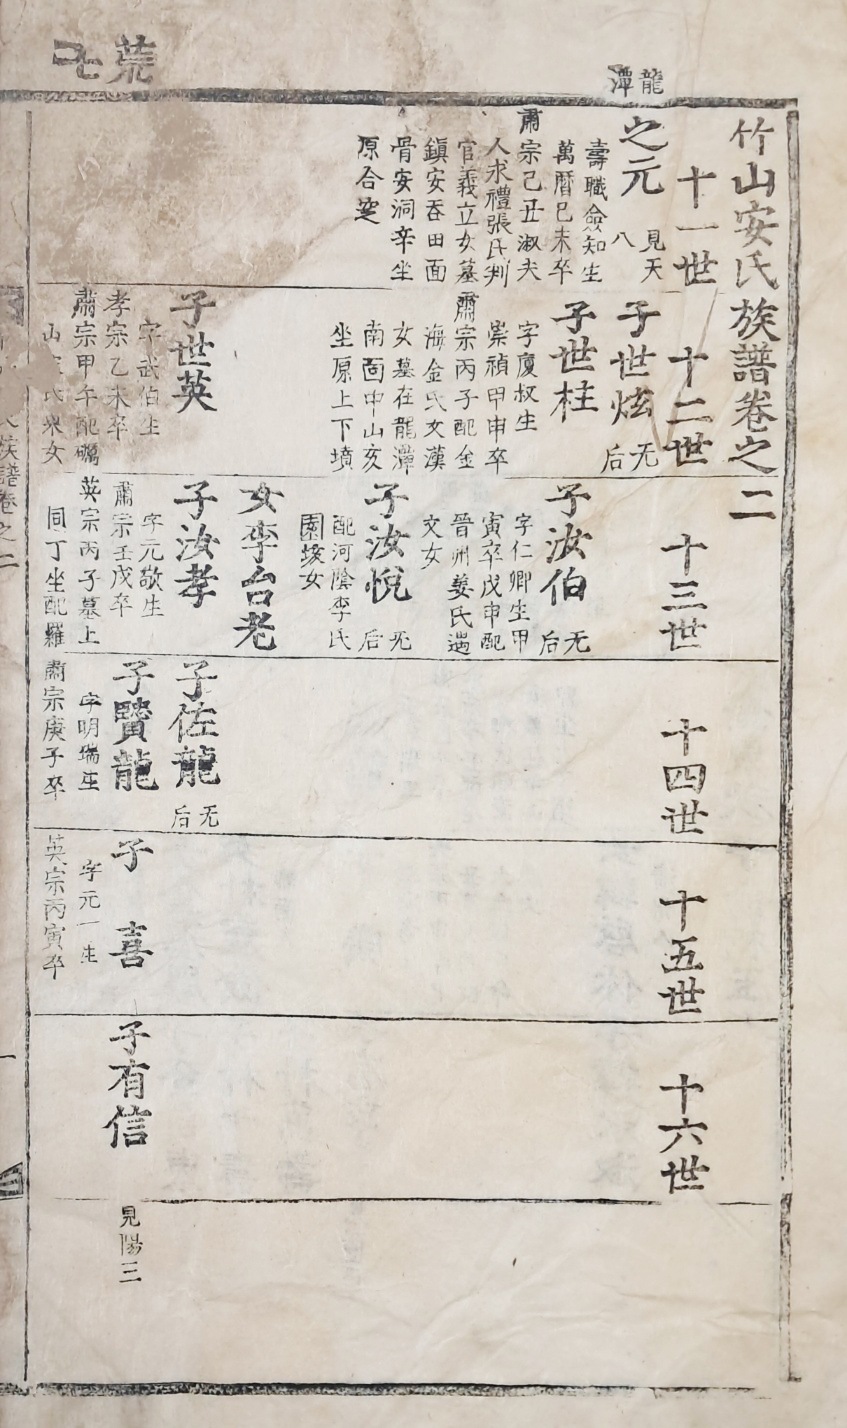 龍潭
荒
竹山安氏族譜卷之二
十一世
之元
見天
八
壽職僉知生
萬曆己未卒
肅宗己丑淑夫
人求禮張氏判
官義立女墓
鎭安吞田面
骨安洞辛坐
原合窆
十二世
子世炫
无
后
子世柱
字廈叔生
崇禎甲申卒
肅宗丙子配金
海金氏文漢
女墓在龍潭
南面中山亥
坐原上下墳
子世英
字武伯生
孝宗乙未卒
肅宗甲午配礪
山宋氏 女
十三世
子汝伯
无
后
字仁卿生甲
寅卒戊申配
晉州姜氏遇
文女
子汝悅
无
后
配河陰李氏
園埈女
女李台老
子汝孝
字元敬生
肅宗壬戌卒
英宗丙子墓上
同丁坐配羅
十四世
子佐龍
无
后
子贒龍
字明瑞生
肅宗庚子卒
十五世
子喜
字元一生
英宗丙寅卒
十六世
子有信
見陽三
族譜卷之二
一